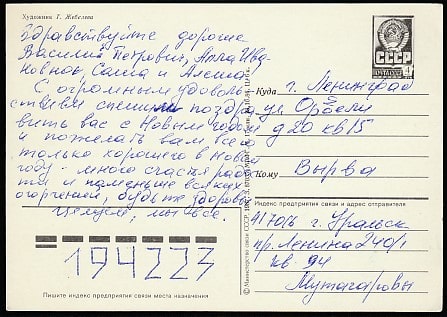 Художник Г. Жебелева
Здравствуйте дорогие
Василий Петрович, Алла Ива-
новна, Саша и Алеша!
С огромным удоволь-
ствием спешим поздра-
вить вас с Новым годом
и пожелать вам всего
только хорошего в Новом
году - много счастья радос-
ти и поменьше всяких
огорчений, будьте здоровы
Целуем, мы все.
194223
Пишите индекс предприятия связи места назначения
© Министерство связи СССР.
СССР
ПОЧТА
4
Куда г. Ленинград
ул. Орбели
д 20 кв 15
Кому Вырва
Индекс предприятия связи и адрес отправителя
417016 г. Уральск
пр. Ленина 240/1
кв. 94
Мутагаровы